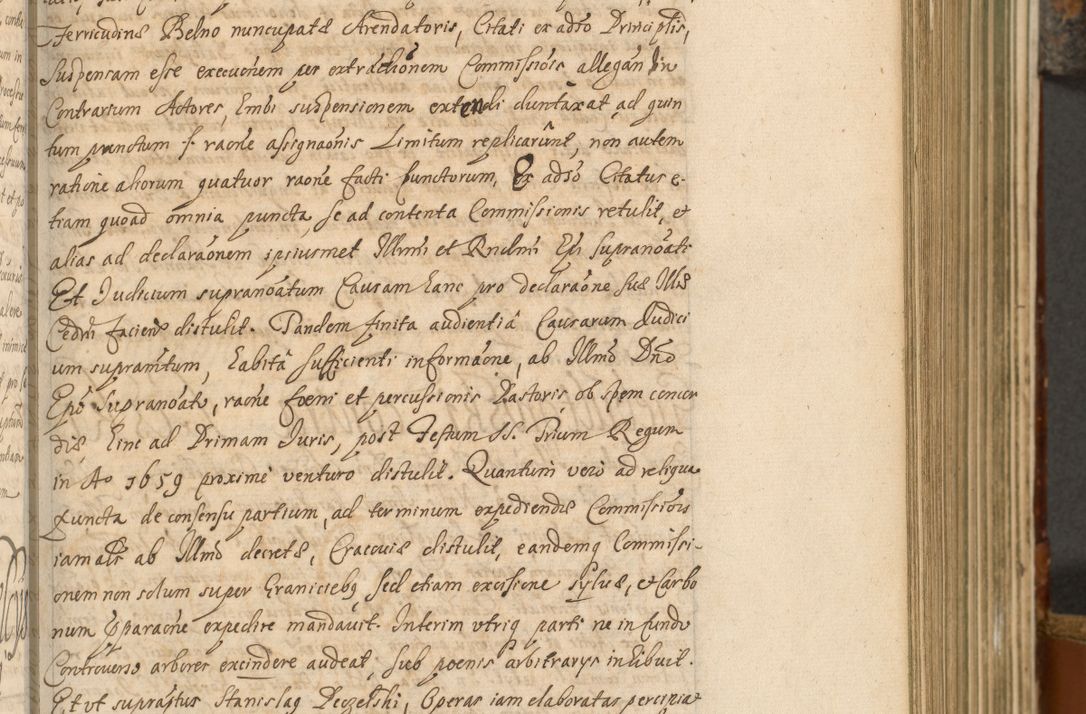 Terricudinæ Belno nuncupatæ Arendatoris, Citati ex adso Principlis,
Suspensam esse execuonem per extractionem Commissiois allegan In
Contrarium Actores, Embi suspensionem extendi duntaxat ad quin
tum punctum raone assignaonis Limitum replicarunt, non autem
ratione aliorum quatuor raone facti punctorum, Ex adso Citatus e-
tiam quoad omnia puncta, se ad contenta Commissionis retulit, et
alias ad declaraonem ipsiusmet Illmi et Rndmi Epi supranoati
Et Iudicium supranoatum Causam hanc pro declaraone suæ Illis
Cedni faciens distulit. Tandem finita audientiâ Causarum Iudici
um supramtum, habitâ sufficienti informaone, ab Illmo Dno
Epo supranoato, raone foeni et percussionis Pastoris ob spem concor
diæ, hinc ad Primam Iuris, post Festum SS. Trium Regum
in Ao 1659 proximè venturo distulit. Quantum verò ad reliqua
puncta de consensu partium, ad terminum expediendæ Commissiois
iam ab Illmo decretæ, Cracoviæ distulit, eandemq Commissi-
onem non solum super Graniciebq, sed etiam excisione sylvæ, et carbo
num pparaone expedire mandavit. Interim utriq parti ne in fundo
Controverso arbores excindere audeat, sub poenis arbitrarys inhibuit.
Et ut suprastus Stanislaq Peczelski, Operas iam elaboratas percipiat